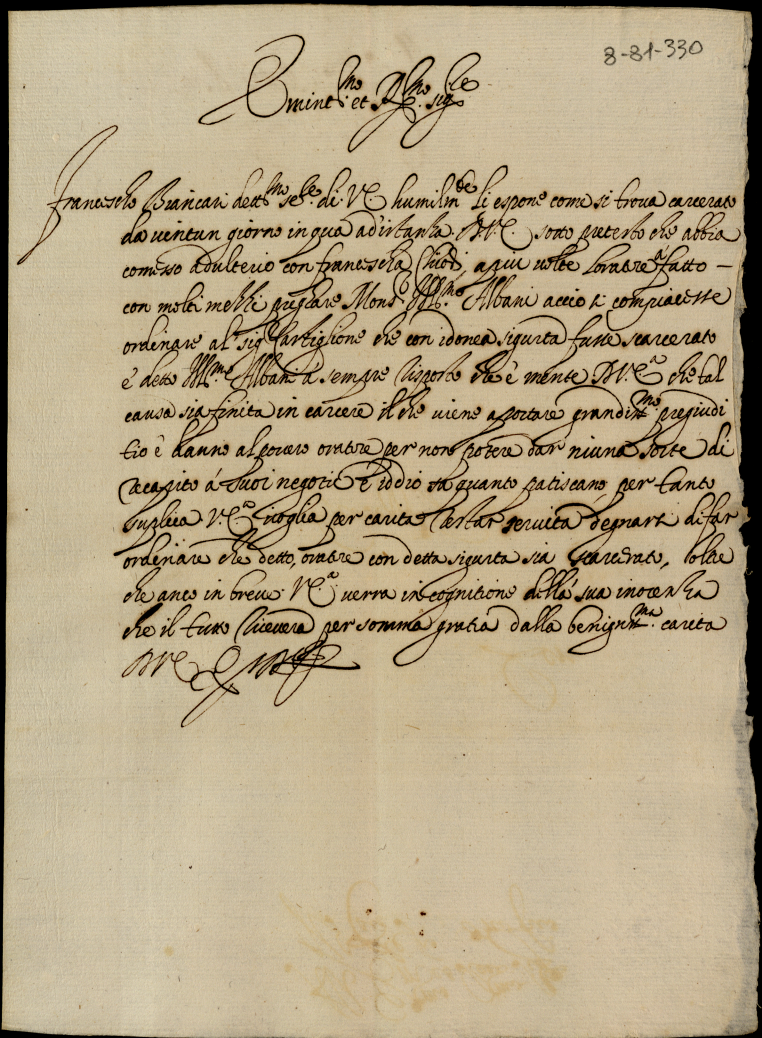 8-81-330
Emint.mo et R.mo sig.re
Francescho Biancari dett.mo se.re di V.E. humilm.te li espone come si trova carcerato
da ventun giorno in qua ad'istanza D.V.E. sotto pretesto che abbia
comesso adulterio con francescha a piu volte loratore á fatto —
con molti mezzi pregare Mons.r Ill.mo Albani accio si compiacesse
ordinare al sig.r Castiglione che con idonea sigurta fusse scarcerato
é detto Ill.mo Albani á sempre risposto che é mente D.V.E.a che tal
causa sia finita in carcere il che viene aportare grandiss.mo pregiudi
tio é danno al povero oratore per non potere dar niuna sorte di
recapito á suoi negotii é iddio sa quanto patiscano per tanto
suplica V.E.a voglia per carita restar servita degnarsi di far
ordinare che detto oratore con detta sigurta sia scarcerato, loltre
che anco in breve V.E.a verra in cognitione della sua inocenza
che il tutto ricevera per somma gratia dalla benigniss.ma carita
D.V.E.